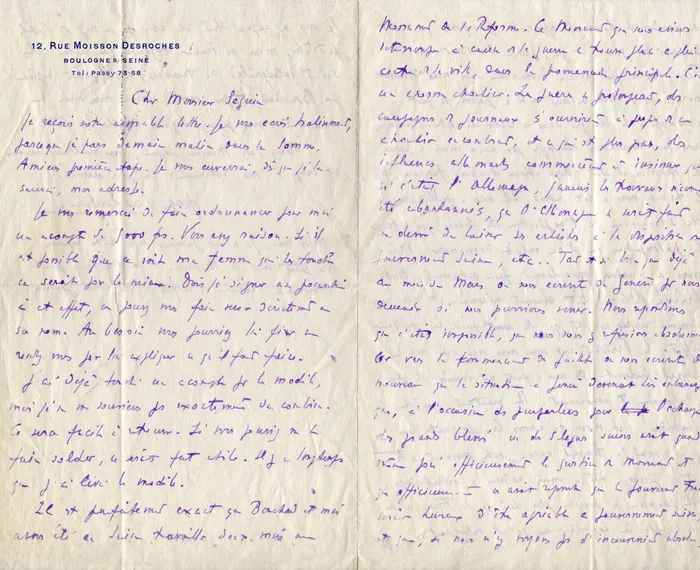 12, RUE MOISSON DESROCHES
BOULOGNE S/ SEINE
Tel: Passy 73-58
Cher Monsieur Seguin
Je reçois votre aimable lettre. Je vous écris hâtivement,
parce que je pars demain matin dans la Somme.
Amiens première étape. Je vous enverrai, dès que je la
saurai, mon adresse.
Je vous remercie de faire ordonnancer pour moi
un acompte de 5000 frs. Vous avez raison. Si il
est possible que ce soit ma femme qui les touche
ce serait pour le mieux. Dois-je signer une procuration
à cet effet, ou pouvez vous faire directement à
son nom. Au besoin vous pourriez lui fixer un
rendez vous pour lui expliquer ce qu'il faut faire.
J'ai déjà touché un acompte pour le modèle,
mais je ne me souviens pas exactement de combien.
Ce sera facile à retrouver. Si vous pouviez me le
faire solder, ce serait fort utile. Il y a longtemps
que j'ai livré le modèle.
Il est parfaitement exact que Bouchard et moi
avons été en Suisse travailler deux mois au
Monument de la Réforme. Ce Monument que nous avions
interrompu à cause de la guerre se trouve placé en plein
centre de la ville, dans la promenade principale. C'
un énorme chantier. La guerre se prolongeant, des
campagnes de journaux s'ouvrirent à propos de ce
chantier encombrant, et ce qui est plus, des
influences allemandes commencèrent à insinuer que
si c'était l'Allemagne, jamais les travaux n'auraient
été abandonnés, que l'Allemagne se serait fait
un devoir de laisser ses artistes à la disposition du
gouvernement suisse, etc.. Tant et si bien que déjà
au mois de Mars on nous écrivit de Genève pour nous
demander si nous pourrions venir. Nous répondîmes
que c'était impossible, que nous nous y refusions absolument
Or vers le commencement de Juillet on nous écrivit de
nouveau que la situation à Genève devenait
que, à l'occasion des pourparlers pour l'échange
des grands blessés un des délégués suisses avait
même posé officieusement la question du Monument et
que officieusement on avait répondu que le gouvernement
serait heureux d'être agréable au gouvernement suisse
et que, si nous n'y voyions pas d'inconvénient